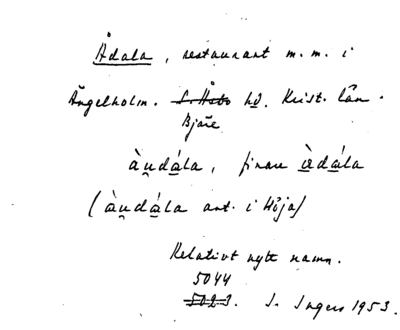 Ådala, restaurant m.m. i
Ängelholm. S. Åsbo hd. Krist. län.
Bjäre
àu̯dála, finare àdála
(àu̯dála ant. i Höja)
Relativt nytt namn.
5044
5023. I. Ingers 1953.